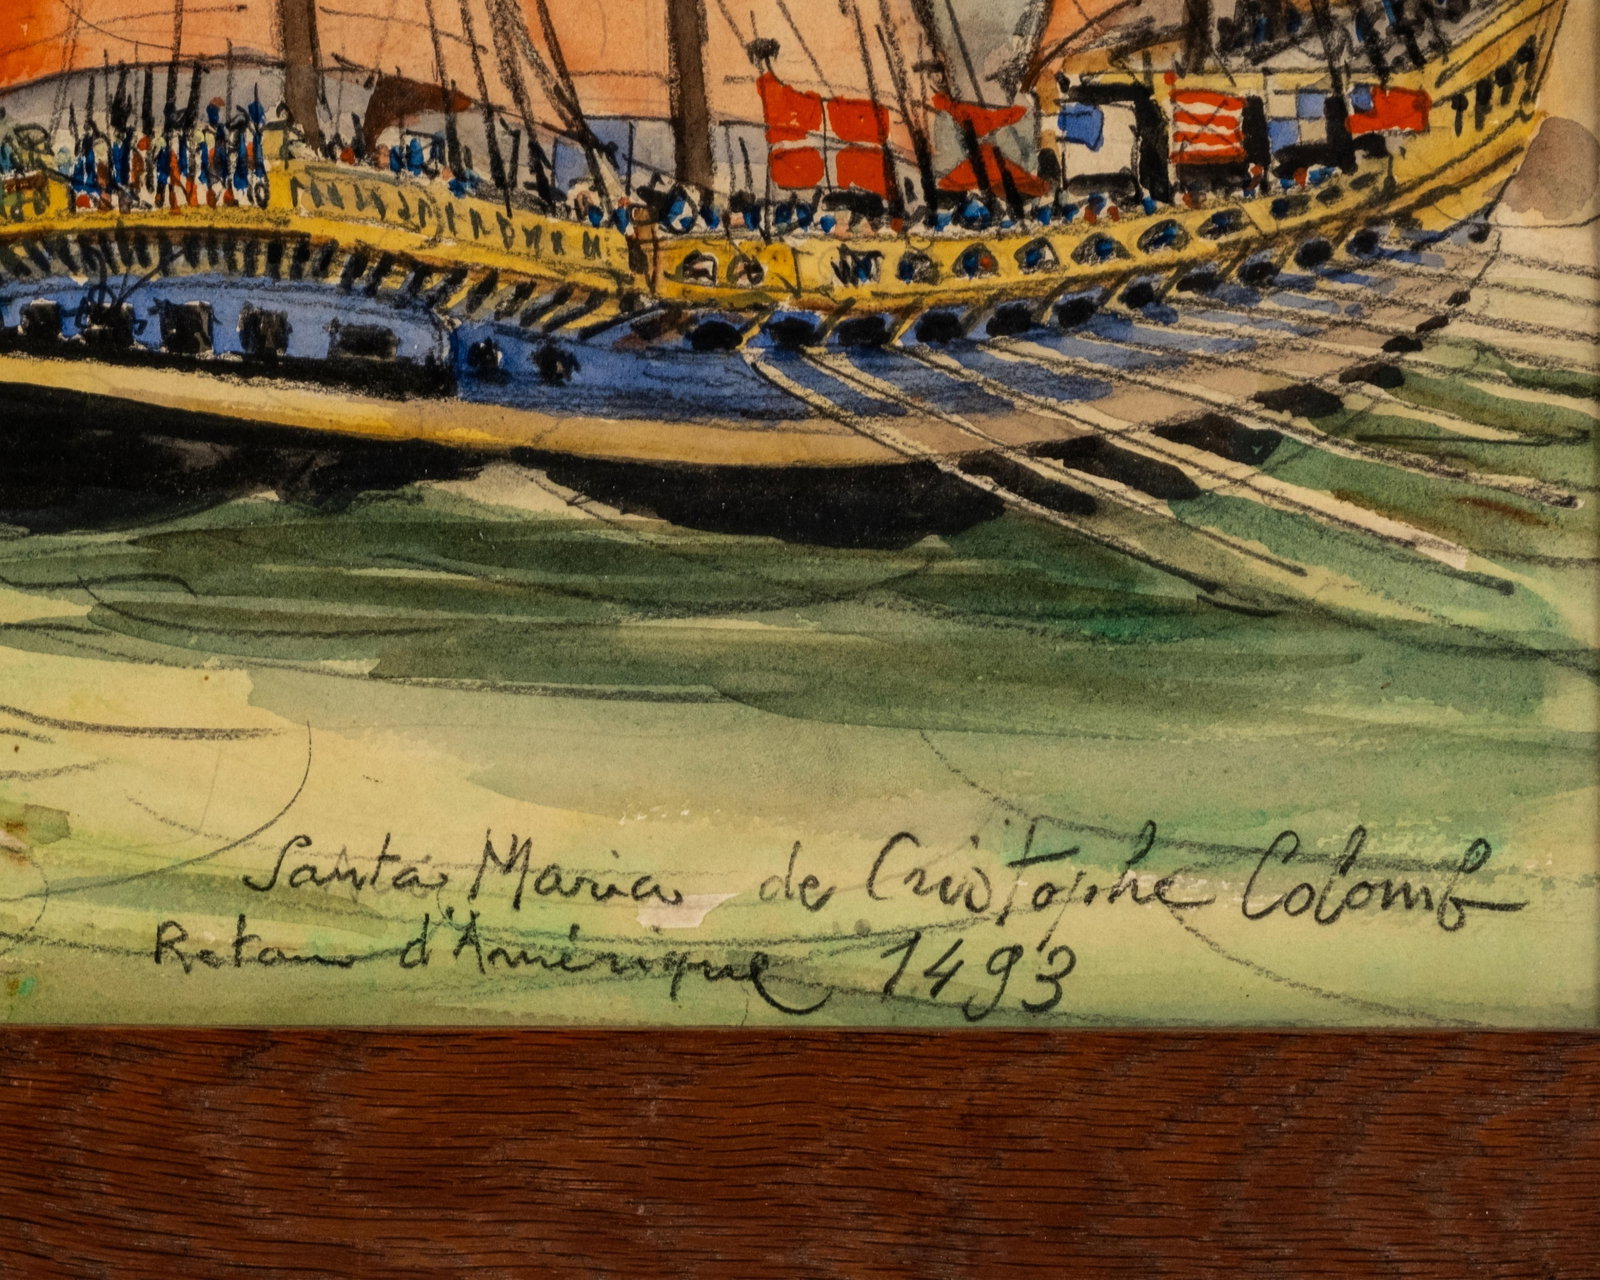 Santa Maria de Cristophe Colomb
Retour d'Amérique 1493